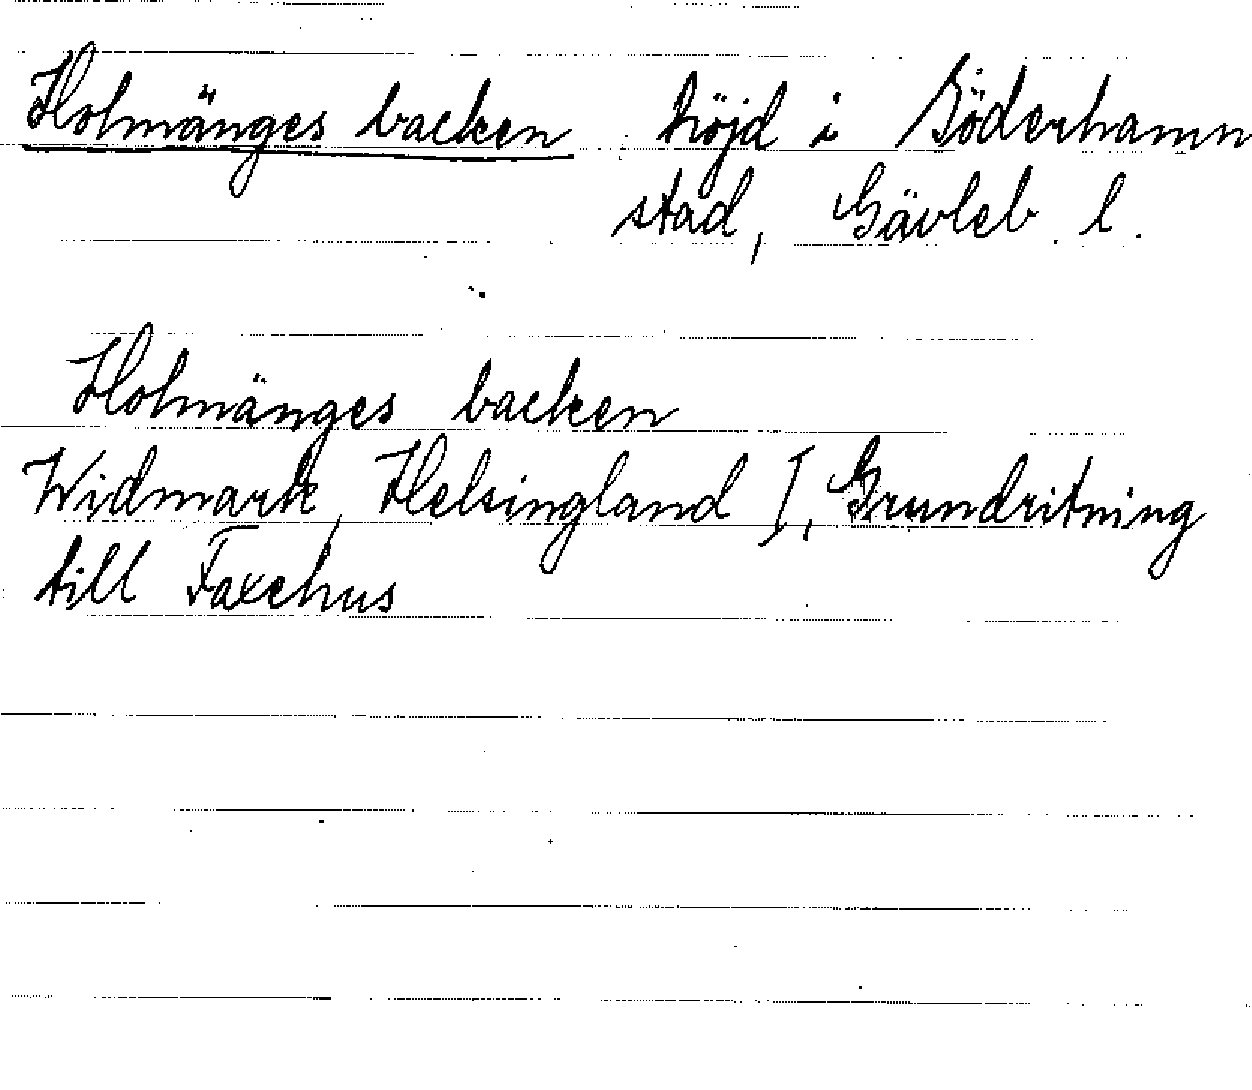 Holmänges backen höjd i Söderhamn
stad, Gävleb. l.
Holmänges backen
Widmark, Helsingland I, Grundritning
till Faxehus